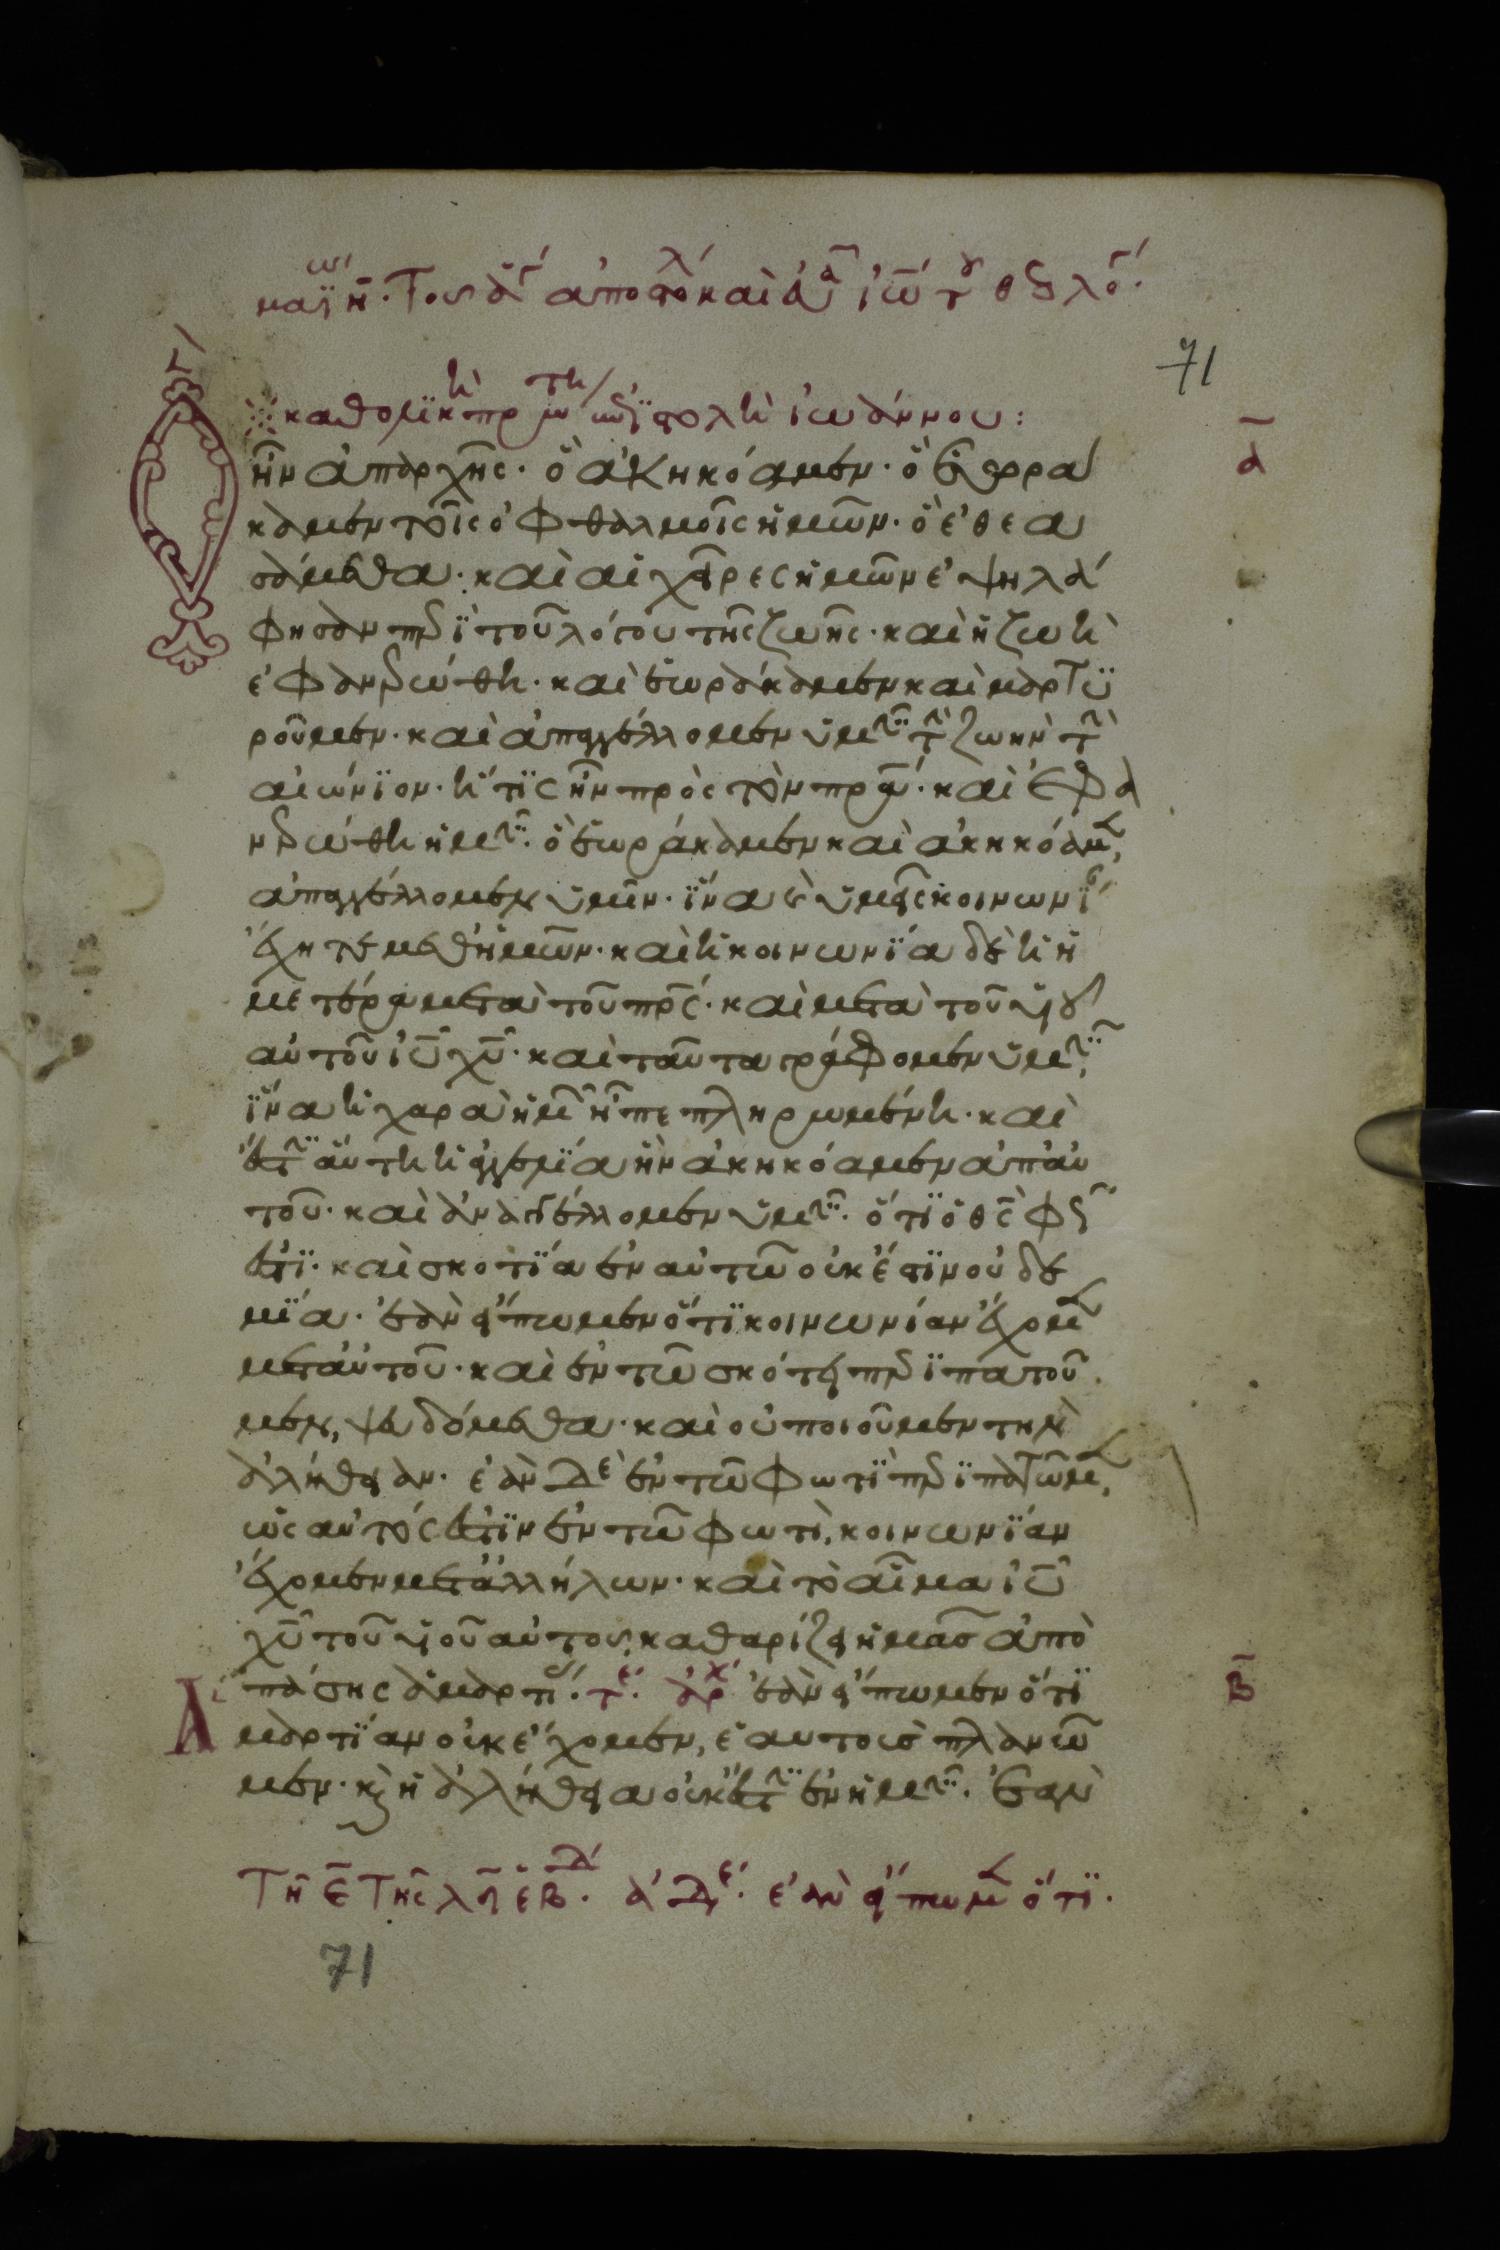 μαϊ η̄. Του ἁγ ἀποστο καὶ ἰω τ θεολο.
71
καθολικὴ πρώτη ἐπιστολὴ ἰωάννου:
ᾱ
Ὃ ἦν ἀπαρχῆς. ὃ ἀκηκόαμεν. ὃ ἑωρρα
καμεν τοῖς ὀφθαλμοῖς ἡμῶν. ὃ ἐθεα
σάμεθα. καὶ αἱ χεῖρες ἡμῶν ἐψηλά
φησαν περὶ τοῦ λόγου τῆς ζωῆς. καὶ ἡ ζωὴ
ἐφανερώθη. καὶ ἑωράκαμεν καὶ μαρτυ
ροῦμεν. καὶ ἀπαγγέλλομεν ὑμῖν τὴν ζωὴν τὴν
αἰώνιον. ἥτις ἦν πρὸς τὸν πρα. καὶ ἐφα
νερώθη ἡμῖν. ὃ ἑωράκαμεν καὶ ἀκηκόαμεν,
ἀπαγγέλλομεν ὑμῖν. ἵνα καὶ ὑμεῖς κοινωνί
ἔχητε μεθ' ἡμῶν. καὶ ἡ κοινωνία δὲ ἡ ἡ
μετέρα μετὰ τοῦ πρς. καὶ μετὰ τοῦ υἱοῦ
αὐτοῦ ἰῦ χῦ. καὶ ταῦτα γράφομεν ὑμῖν,
ἵνα ἡ χαρὰ ἡμῶν ἦ πεπληρωμένη. καὶ
ἔστιν αὕτη ἡ ἀγγελία ἣν ἀκηκόαμεν ἀπ' αὐ
τοῦ. καὶ ἀναγγέλλομεν ὑμῖν. ὅτι ὁ θς φῶς
ἐστι. καὶ σκοτία ἐν αὐτῶ οὐκ ἔστιν οὐδε
μία. ἐὰν εἴπωμεν ὅτι κοινωνίαν ἔχομεν
μετ' αὐτοῦ. καὶ ἐν τῶ σκότει περιπατοῦ
μεν, ψευδόμεθα. καὶ οὐ ποιοῦμεν τὴν
ἀλήθειαν. ἐὰν δὲ ἐν τῶ φωτὶ περιπατῶμεν,
ὡς αὐτός ἐστιν ἐν τῶ φωτὶ, κοινωνίαν
ἔχομεν μετ' ἀλλήλων. καὶ τὸ αἷμα ἰῦ
χῦ τοῦ υἱοῦ αὐτου, καθαρίζει ἡμᾶσ ἀπὸ
πάσης ἁμαρτί. τε. ἀρχ ἐὰν εἴπωμεν ὅτι
β̄
Α
μαρτίαν οὐκ ἔχομεν, ἑαυτουσ πλανῶ
μεν. κ ἡ ἀλήθεια οὐκ ἔστιν ἐν ἡμῖν. ἐὰν
Τῆ ε̄ τῆς λη εβδ. ἀδε. ἐὰν εἴπωμεν ὅτι.
71